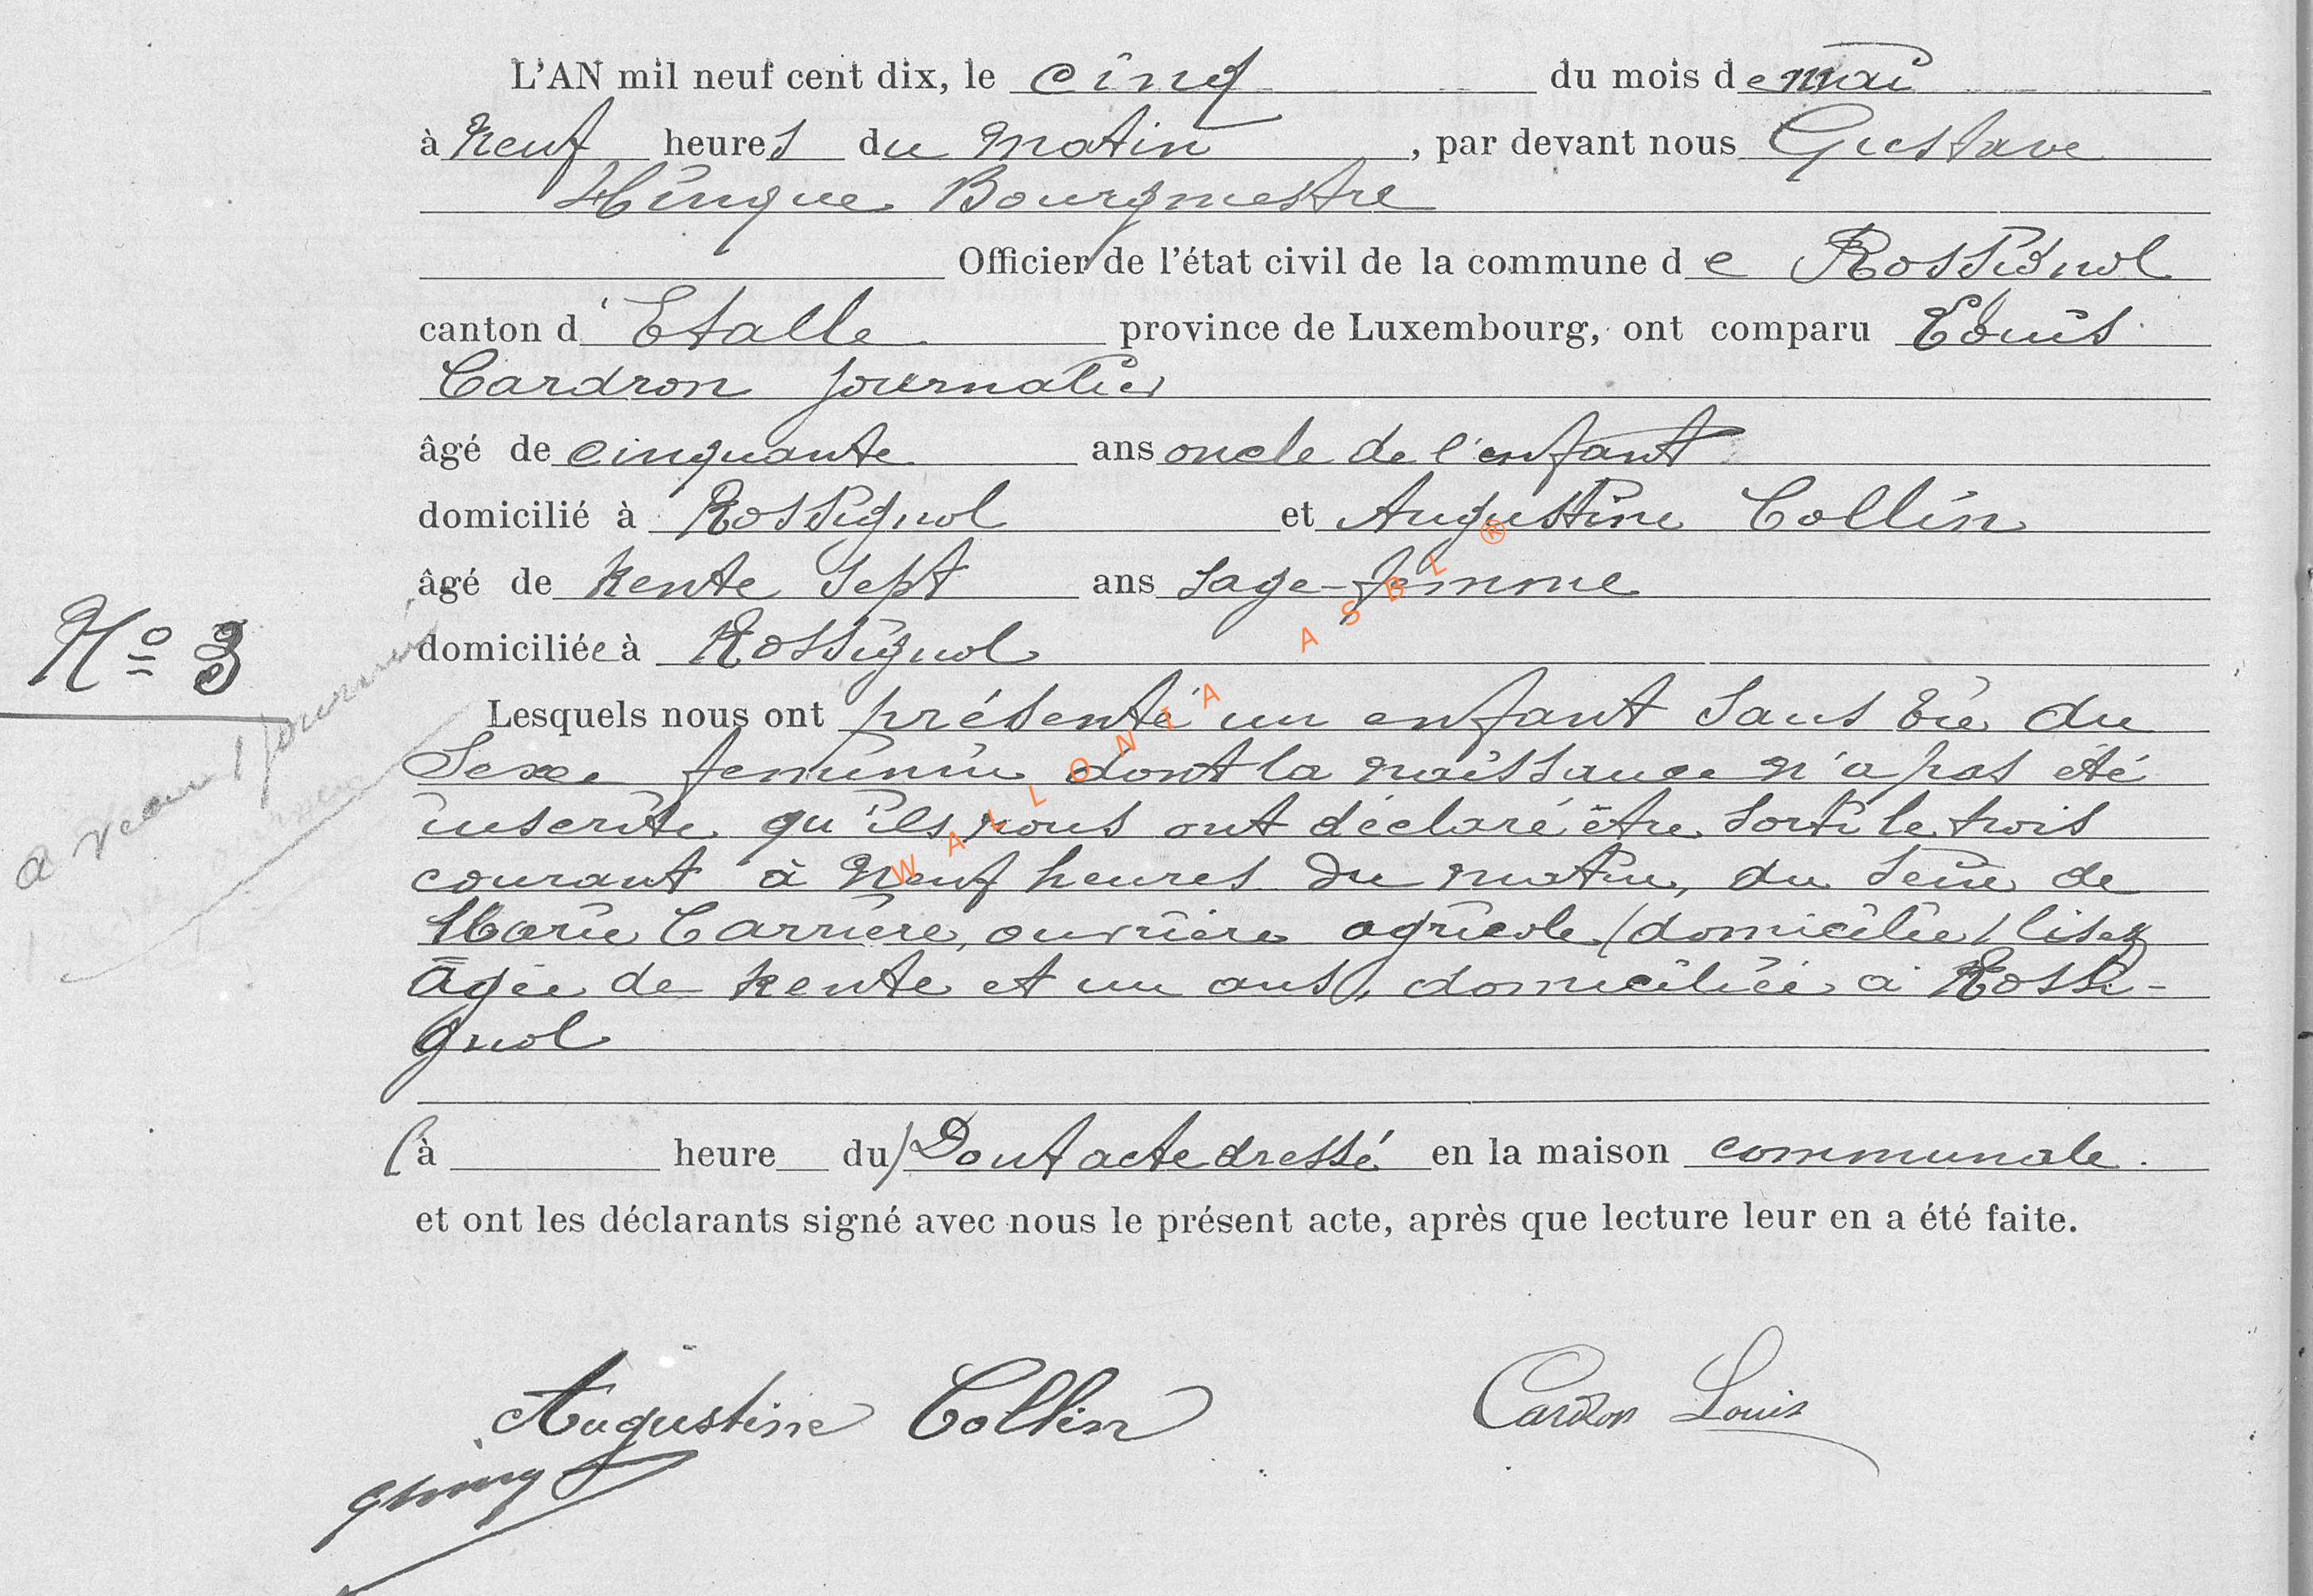 L'AN mil neuf cent dix, le cinq du mois de mai
à neuf heures du matin, par devant nous Gustave
Hinque Bourgmestre
Officier de l'état civil de la commune de Rossignol
canton d'Etalle province de Luxembourg, ont comparu Louis
Cardron journalier
âgé de cinquante ans oncle de l'enfant
domicilié à Rossignol et Augustine Collin
âgé de trente sept ans sage-femme
domiciliée à Rossignol
N° 3
Lesquels nous ont présenté un enfant sans vie du
sexe féminin dont la naissance n'a pas été
inscrite qu'ils nous ont déclaré être sorti le trois
courant à neuf heures du matin, du sein de
Marie Carrière, ouvrière agricole (domiciliée) lisez
âgée de trente et un ans, domiciliée à Rossi-
gnol
(à heure du) Dont acte dressé en la maison communale.
et ont les déclarants signé avec nous le présent acte, après que lecture leur en a été faite.
Augustine Collin Cardron Louis
WALLONIA ASBL ®